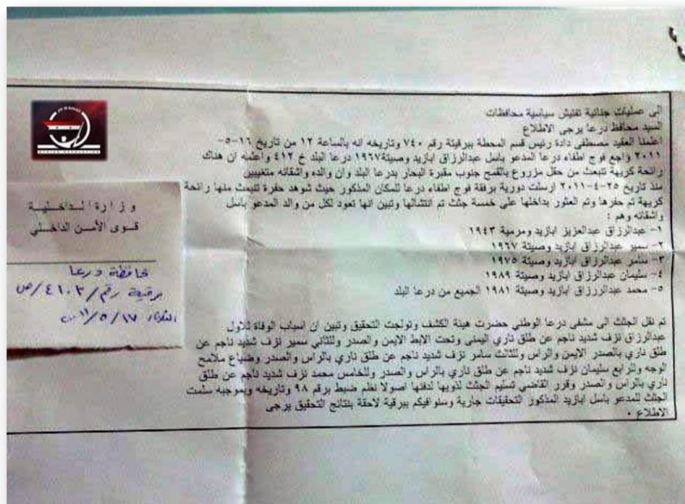 الى عمليات جنائية تفتيش سياسية محافظات
السيد محافظ درعا يرجى الاطلاع
اعلمنا العقيد مصطفى دادة رئيس قسم المحطة ببرقيتة رقم ٧٤٠ وتاريخه انه بالساعة ١٢ من تاريخ ١٦-٥-
٢٠١١ راجع فوج اطفاء درعا المدعو باسل عبدالرزاق ابازيد وصيتة١٩٦٧ درعا البلد خ ٤١٢ واعلمه ان هناك
رائحة كريهة تنبعث من حقل مزروع بالقمح جنوب مقبرة البحار بدرعا البلد وان والده واشقائه متغيبين
منذ تاريخ ٢٥-٤-٢٠١١ ارسلت دورية برفقة فوج اطفاء درعا للمكان المذكور حيث شوهد حفرة تنبعث منها رائحة
كريهة تم حفرها وتم العثور بداخلها على خمسة جثث تم انتشالها وتبين انها تعود لكل من والد المدعو باسل
واشقائه وهم :
١- عبدالرزاق عبدالعزيز ابازيد ومرمية ١٩٤٣
٢- سمير عبدالرزاق ابازيد وصيتة ١٩٦٧
٣- سامر عبدالرزاق ابازيد وصيتة ١٩٧٥
٤- سليمان عبدالرزاق ابازيد وصيتة ١٩٨٩
٥- محمد عبدالررزاق ابازيد وصيتة ١٩٨١ الجميع من درعا البلد
تم نقل الجثث الى مشفى درعا الوطني حضرت هيئة الكشف وتولجت التحقيق وتبين ان اسباب الوفاة للاول
عبدالرزاق نزف شديد ناجم عن طلق ناري اليمنى وتحت الابط الايمن والصدر وللثاني سمير نزف شديد ناجم عن
طلق ناري بالصدر الايمن والراس وللثالث سامر نزف شديد ناجم عن طلق ناري بالراس والصدر وضياع ملامح
الوجه وللرابع سليمان نزف شديد ناجم عن طلق ناري بالراس والصدر وللخامس محمد نزف شديد ناجم عن طلق
ناري بالراس والصدر وقرر القاضي تسليم الجثث لذويها لدفنها اصولا نظم ضبط برقم ٩٨ وتاريخه وبموجبه سلمت
الجثث للمدعو باسل ابازيد المذكور التحقيقات جارية وسنوافيكم ببرقية لاحقة بنتائج التحقيق يرجى
الاطلاع .
وزارة الداخلية
قوى الأمن الداخلي
محافظة درعا
برقية رقم / ٤١٠٢/ص
الثلاثاء ١٧/٥/